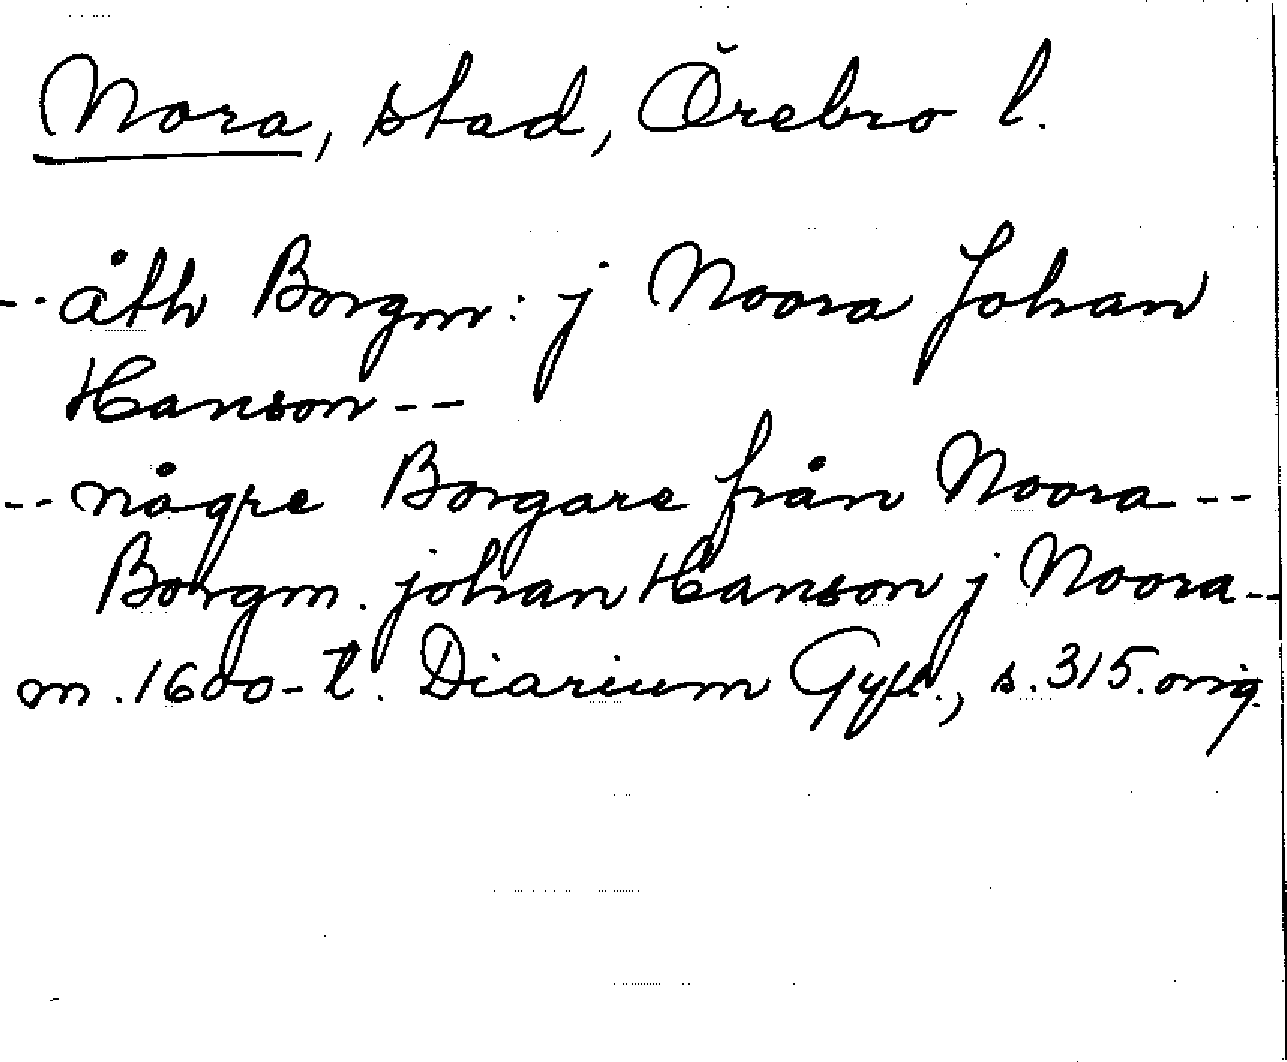 Nora, stad, Örebro l.
-- åth Borgm: j Noora Johan
Hanson --
-- någre Borgare från Noora --
Borgm. johan Hanson j Noora --
m. 1600-t. Diarium Gyll., s. 315. orig.